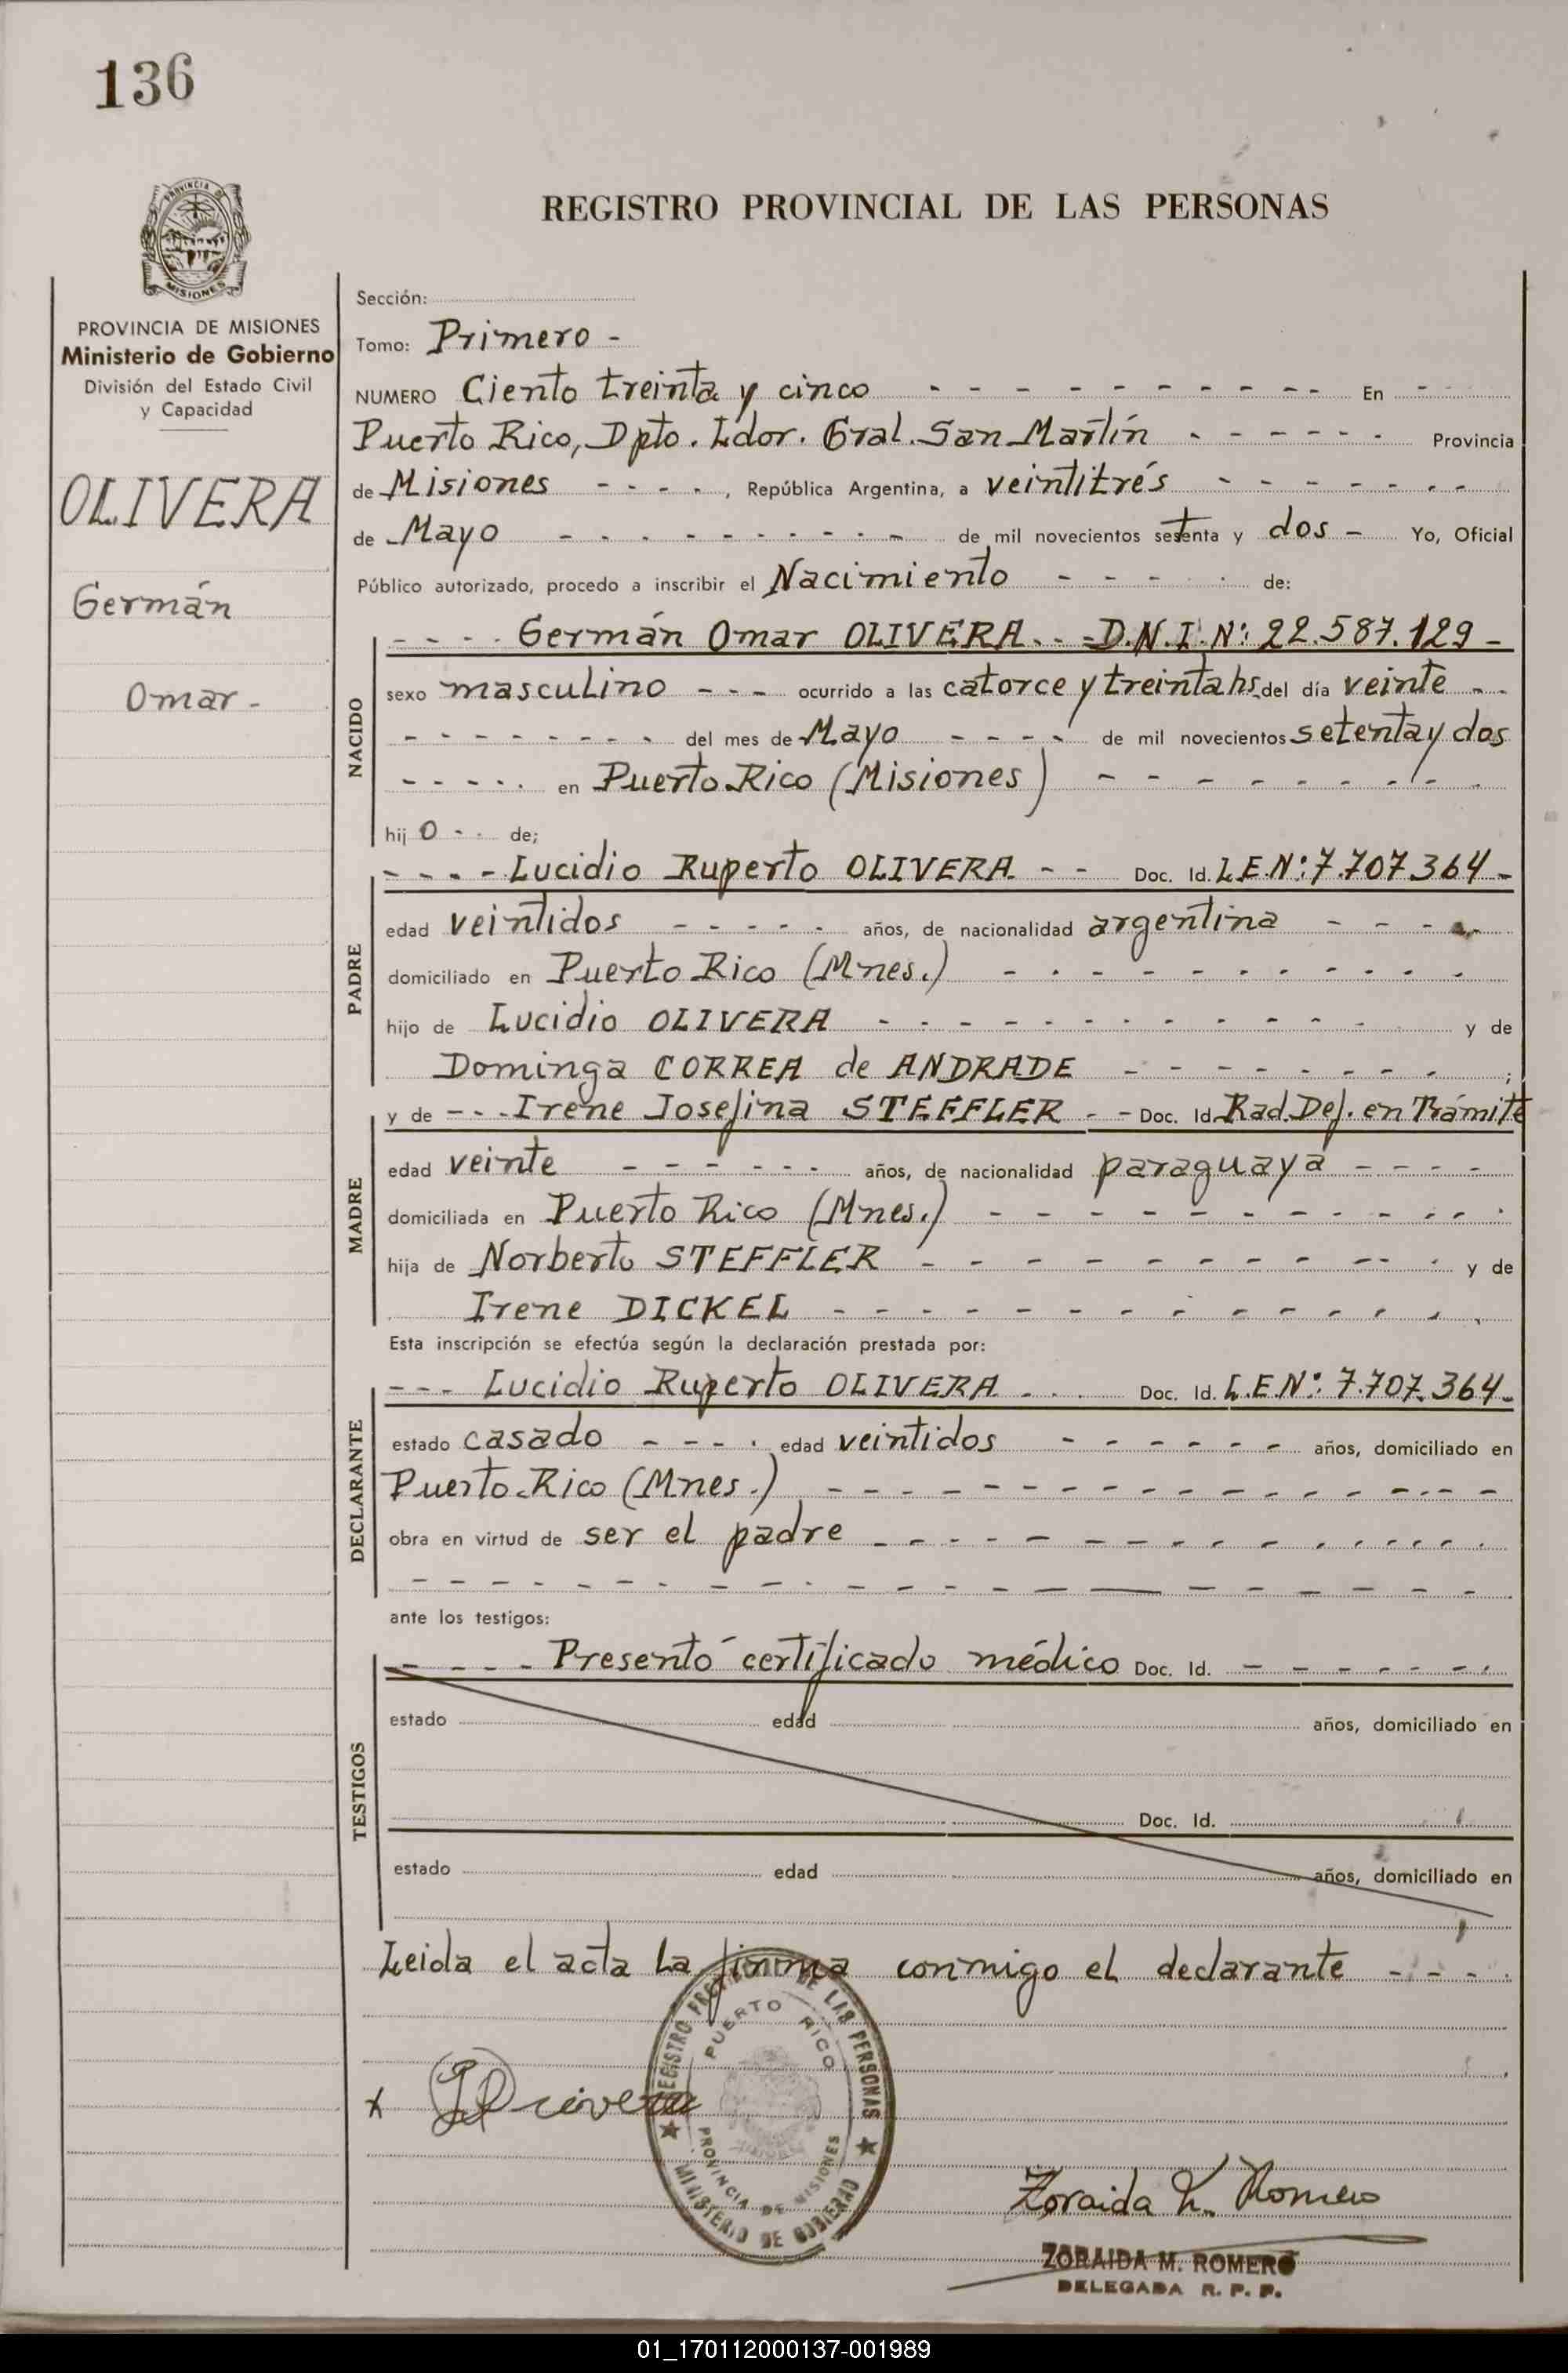 136
REGISTRO PROVINCIAL DE LAS PERSONAS
PROVINCIA DE
MISIONES
PROVINCIA DE MISIONES
Ministerio de Gobierno
División del Estado Civil
y Capacidad
OLIVERA
Germán
Omar -
Sección:
Tomo: Primero -
NUMERO Ciento treinta y cinco - - - - - - - - - - En - -
Puerto Rico, Dpto. Ldor. Gral. San Martín - - - - - - Provincia
de Misiones - - - -, República Argentina, a veintitrés - - - - - - -
de Mayo - - - - - - - - - de mil novecientos setenta y dos - Yo, Oficial
Público autorizado, procedo a inscribir el Nacimiento - - - - de:
NACIDO
- - - - Germán Omar OLIVERA. - - D.N.I. Nº: 22.587.129 -
sexo masculino - - - ocurrido a las catorce y treinta hs. del día veinte - -
- - - - - - - - del mes de Mayo - - - - de mil novecientos setenta y dos
- - - - - en Puerto Rico (Misiones) - - - - - - - - -
hij o - - de;
PADRE
- - - - Lucidio Ruperto OLIVERA - - Doc. Id. L.E.Nº: 7.707.364 -
edad veintidos - - - - - años, de nacionalidad argentina - - - -
domiciliado en Puerto Rico (Mnes.) - - - - - - - - - -
hijo de Lucidio OLIVERA - - - - - - - - - - - - y de
Dominga CORREA de ANDRADE - - - - - - - - ;
MADRE
y de - - - Irene Josefina STEFFLER - - Doc. Id. Rad. Def. en Trámite
edad veinte - - - - - - años, de nacionalidad paraguaya - - - -
domiciliada en Puerto Rico (Mnes.) - - - - - - - - - - -
hija de Norberto STEFFLER - - - - - - - - - - - y de
Irene DICKEL - - - - - - - - - - - - - -
Esta inscripción se efectúa según la declaración prestada por:
DECLARANTE
- - - Lucidio Ruperto OLIVERA - - - Doc. Id. L.E.Nº: 7.707.364 -
estado casado - - - - edad veintidos - - - - - - - años, domiciliado en
Puerto Rico (Mnes.) - - - - - - - - - - - - - - - -
obra en virtud de ser el padre - - - - - - - - - - - - - - -
- - - - - - - - - - - - - - - - - - - - - - -
ante los testigos:
TESTIGOS
- - - - Presentó certificado médico Doc. Id. - - - - - - -
estado edad años, domiciliado en
Doc. Id.
estado edad años, domiciliado en
Leida el acta la firma conmigo el declarante - - - -
REGISTRO PROVINCIAL DE LAS PERSONAS
PUERTO RICO
PROVINCIA DE MISIONES
MINISTERIO DE GOBIERNO
x Olivera
Zoraida M. Romero
ZORAIDA M. ROMERO
DELEGADA R. P. P.
01_170112000137-001989